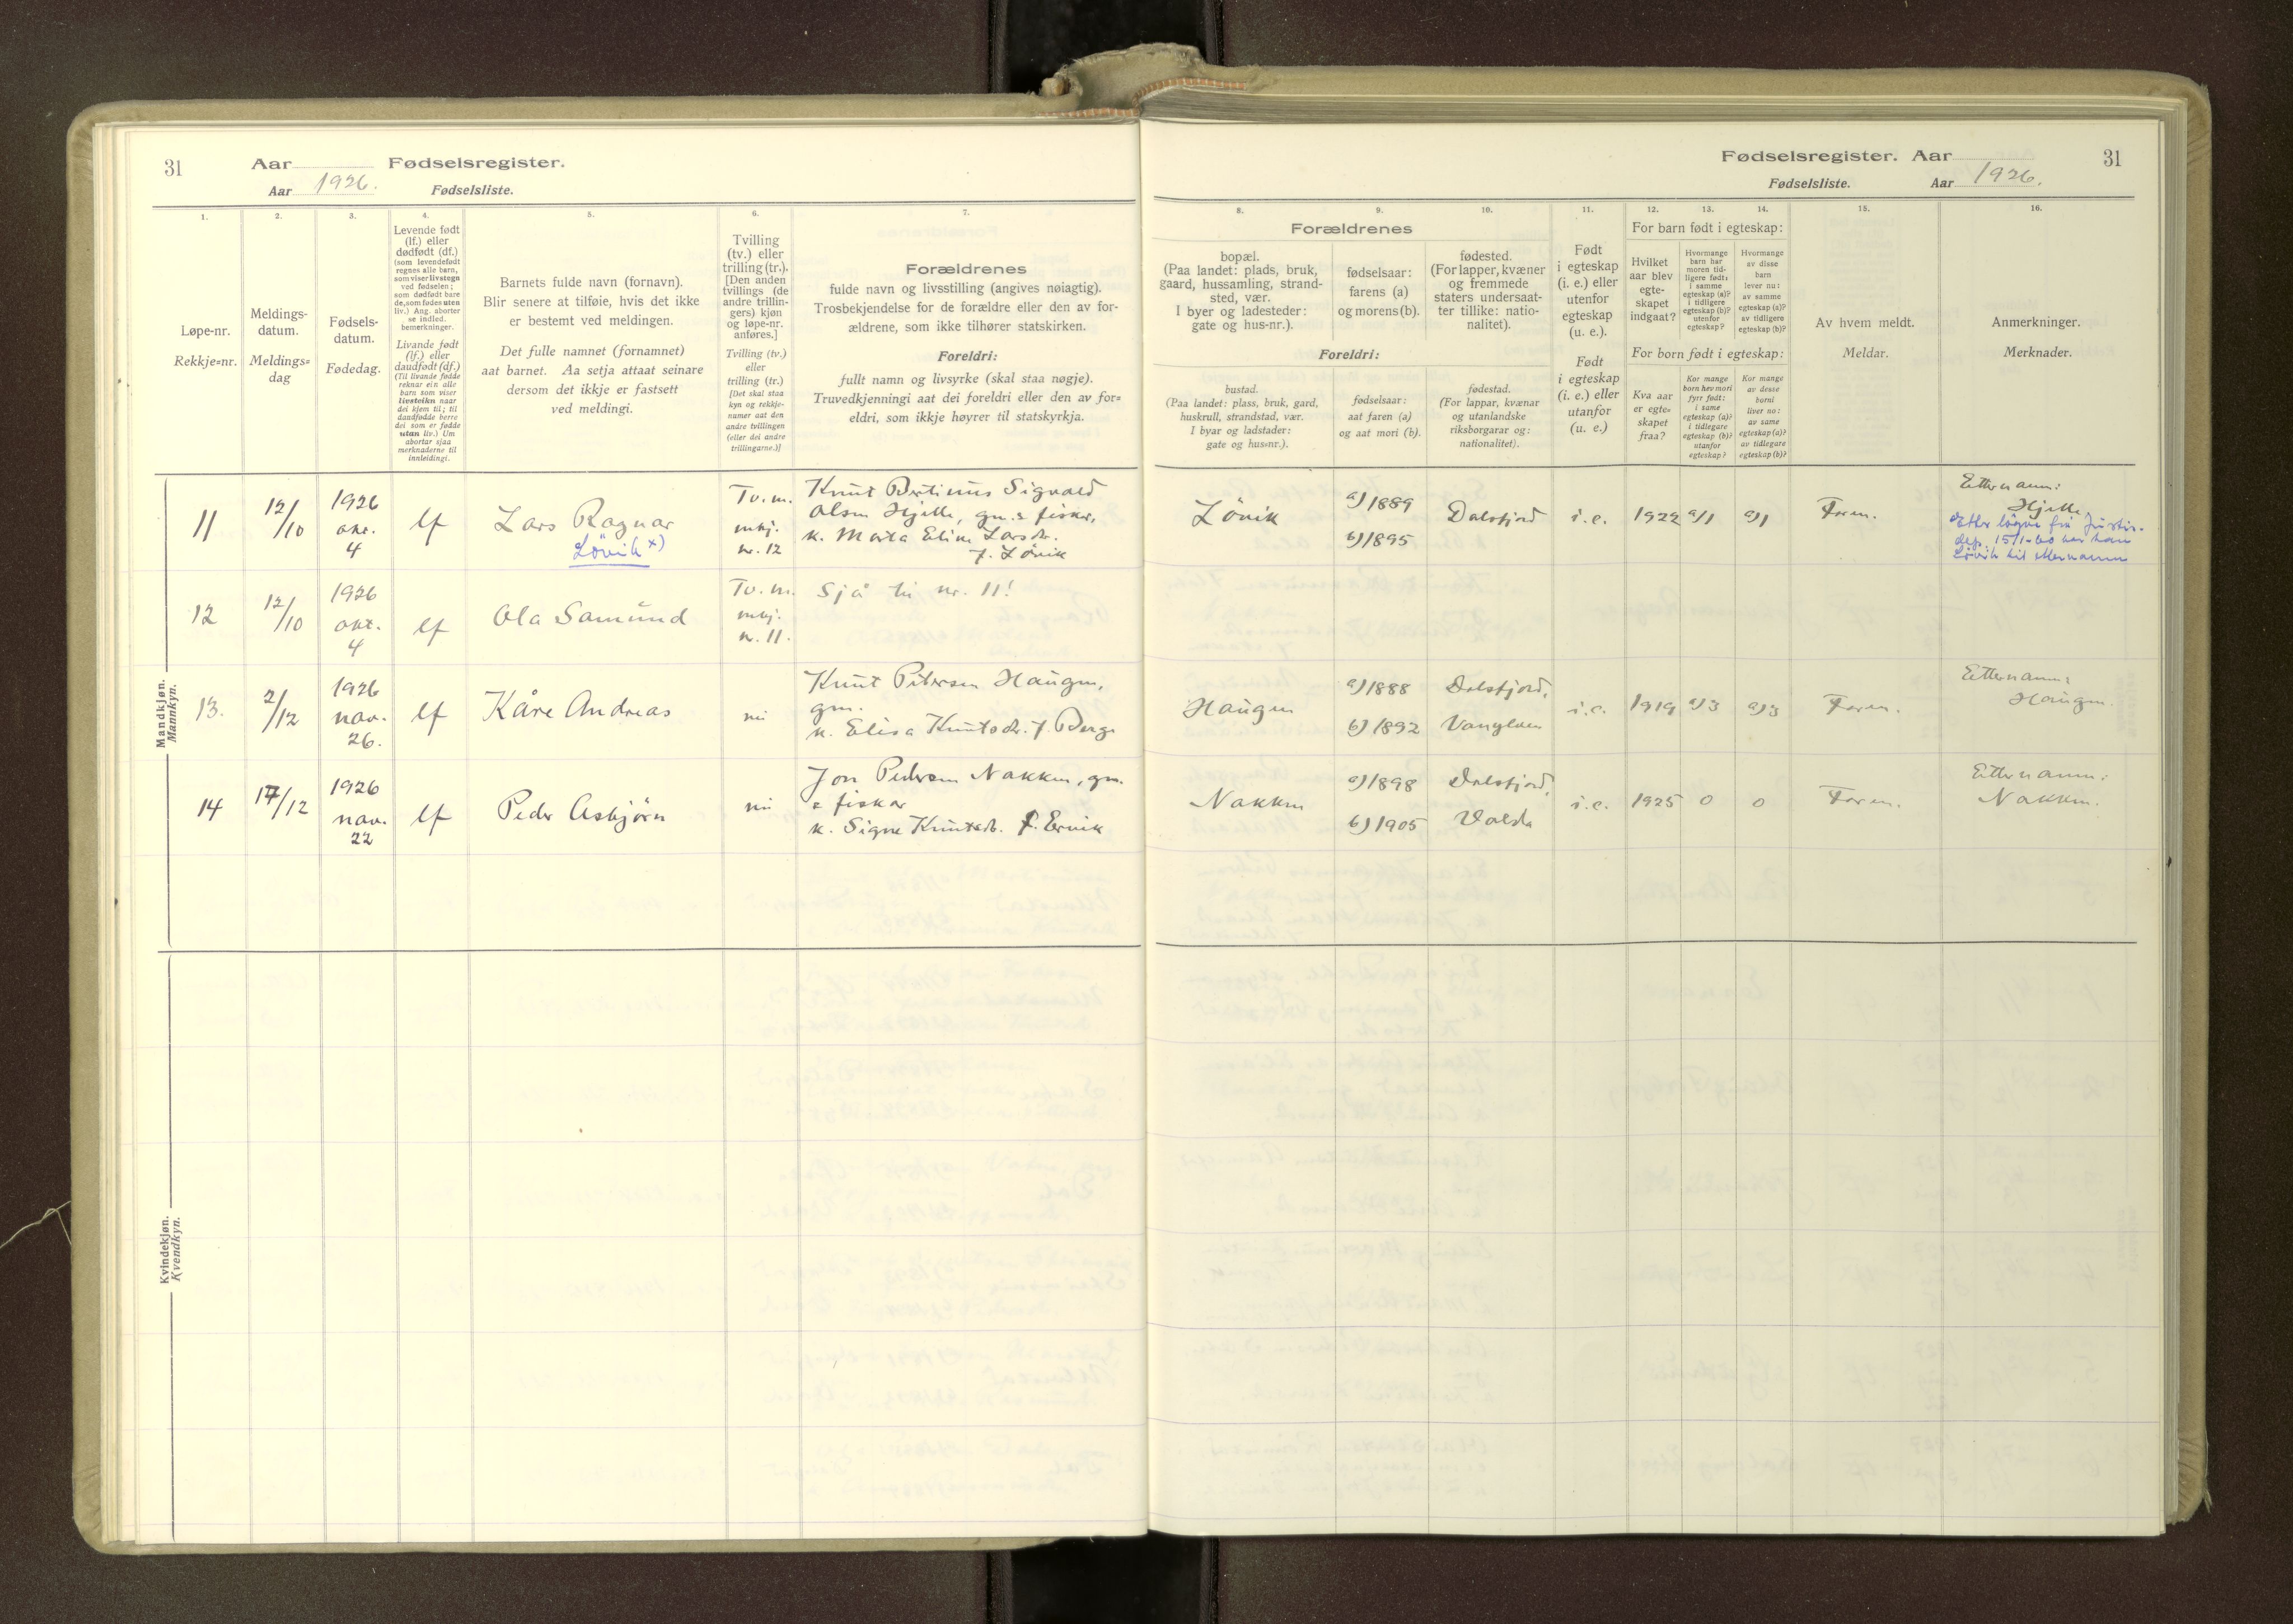 31 Aar Fødselsregister.
Aar 1926. Fødselsliste.
1. 2. 3. 4. 5. 6. 7.
Løpe-nr.
Rekkje=nr.
Meldings-
datum.
Meldings=
dag
Fødsels-
datum.
Fødedag.
Levende født
(lf.) eller
dødfødt (df.)
(som levendefødt
regnes alle barn,
som viser livstegn
ved fødselen;
som dødfødt bare
de, som fødes uten
liv.) Ang. aborter
se indled.
bemerkninger.
Livande født
(lf.) eller
daudfødt (df.)
(Til livande fødde
reknar ein alle
barn som viser
livsteikn naar
dei kjem til; til
daudfødde berre
dei som er fødde
utan liv.) Um
abortar sjaa
merknaderne til
innleidingi.
Barnets fulde navn (fornavn).
Blir senere at tilføie, hvis det ikke
er bestemt ved meldingen.
Det fulle namnet (fornamnet)
aat barnet. Aa setja attaat seinare
dersom det ikkje er fastsett
ved meldingi.
Tvilling
(tv.) eller
trilling (tr.).
[Den anden
tvillings (de
andre trillin-
gers) kjøn
og løpe-nr.
anføres.]
Tvilling (tv.)
eller
trilling (tr.)
[Det skal staa
kyn og rekkje-
numer aat den
andre tvillingen
(eller dei andre
trillingarne.)]
Forældrenes
fulde navn og livsstilling (angives nøiagtig).
Trosbekjendelse for de forældre eller den av for-
ældrene, som ikke tilhører statskirken.
Foreldri:
fullt namn og livsyrke (skal staa nøgje).
Truvedkjenningi aat dei foreldri eller den av for=
eldri, som ikkje høyrer til statskyrkja.
Mandkjøn.
Mannkyn.
11
12/10
1926
okt.
4
lf
Lars Ragnar
Lövik x)
Tv. m.
mkj.
nr. 12
Knut Bertinus Sigvald
Olsen Hjelle, gm. & fisker,
k. Marta Eline Larsdr.
f. Lövik
12
12/10
1926
okt.
4
lf
Ola Samund
Tv. m.
mkj.
nr. 11.
Sjå til nr. 11!
13.
2/12
1926
nov.
26.
lf
Kåre Andreas
nei
Knut Petersen Haugen,
gm.
k. Elisa Knutsdr. f. Berge
14
17/12
1926
nov.
22
lf
Peder Asbjörn
nei
Jon Pedersen Nakken, gm.
& fiskar
k. Signe Knutsdr. f. Ervik
Kvindekjøn.
Kvendkyn.
Fødselsregister. Aar 31
Fødselsliste. Aar 1926.
8. 9. 10. 11. 12. 13. 14. 15. 16.
Forældrenes
bopæl.
(Paa landet: plads, bruk,
gaard, hussamling, strand-
sted, vær.
I byer og ladesteder:
gate og hus-nr.).
fødselsaar:
farens (a)
og morens (b).
fødested.
(For lapper, kvæner
og fremmede
staters undersaat-
ter tillike: natio-
nalitet).
Foreldri:
bustad.
(Paa landet: plass, bruk, gard,
huskrull, strandstad, vær.
I byar og ladstader:
gate og hus=nr.).
fødselsaar:
aat faren (a)
og aat mori (b).
fødestad.
(For lappar, kvænar
og utanlandske
riksborgarar og:
nationalitet).
Født
i egteskap
(i. e.) eller
utenfor
egteskap
(u. e.).
Født
i egteskap
(i. e.) eller
utanfor
(u. e.)
For barn født i egteskap:
Hvilket
aar blev
egte-
skapet
indgaat?
Hvormange
barn har
moren tid-
ligere født:
i samme
egteskap (a)?
i tidligere
egteskap (b)?
utenfor
egteskap?
Hvormange
av disse
barn
lever nu:
av samme
egteskap (a)?
av tidligere
egteskap (b)?
For born født i egteskap:
Kva aar
er egte=
skapet
fraa?
Kor mange
born hev mori
fyrr født:
i same
egteskap (a)?
i tidlegare
egteskap (b)?
utanfor
egteskap?
Kor mange
av desse
borni
liver no:
av same
egteskap (a)?
av tidlegare
egteskap (b)?
Av hvem meldt.
Meldar.
Anmerkninger.
Merknader.
Lövik
a) 1889
b) 1895
Dalsfjord
i. e.
1922
a) 1
a) 1
Faren.
Etternamn:
Hjelle
Etter löyve frå Justis-
dep. 15/1-60 har han
Lövik til etternamn
Haugen
a) 1888
b) 1892
Dalsfjord,
Vanylven
i. e.
1919
a) 3
a) 3
Faren.
Etternamn:
Haugen.
Nakken
a) 1898
b) 1905
Dalsfjord,
Volda
i. e.
1925
0
0
Faren.
Etternamn:
Nakken.